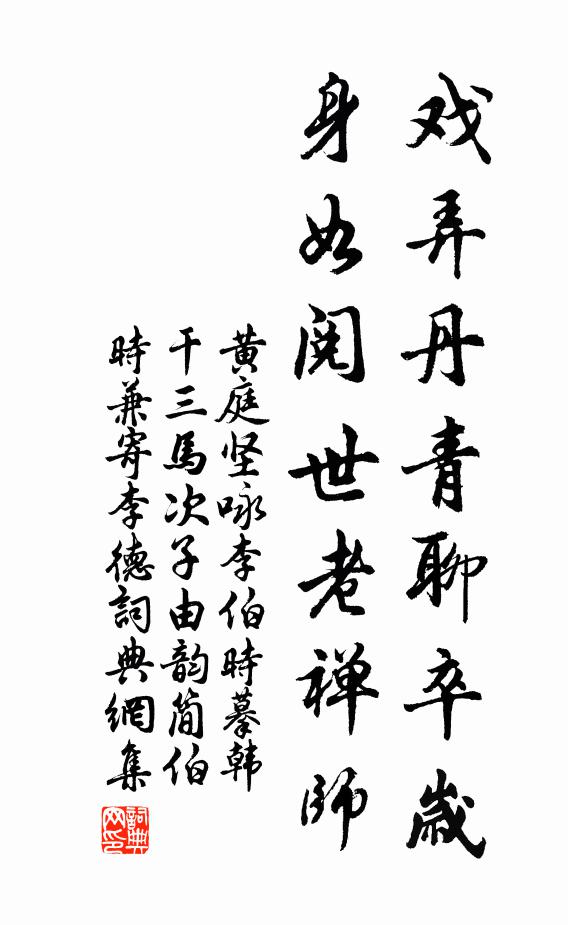 戏弄丹青聊卒歲
身如阅世老禅師
黄庭坚咏李伯時摹韩
干三馬次子由韵简伯
時兼寄李德詞典網集
詞典
网印